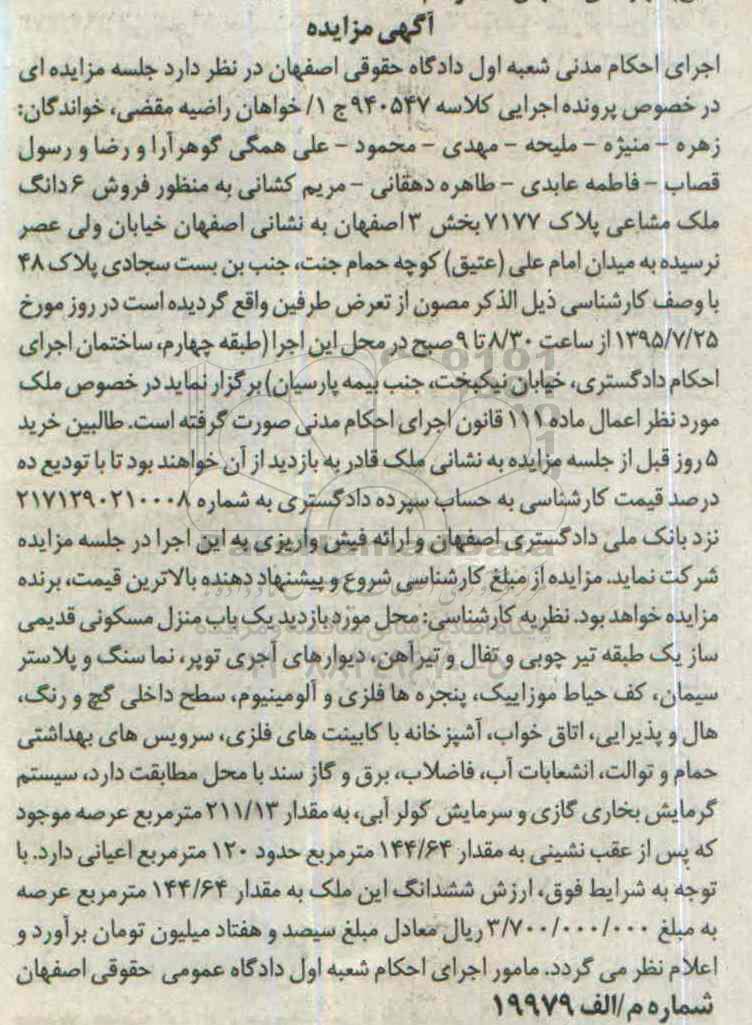 آگهی مزایده
اجرای احکام مدنی شعبه اول دادگاه حقوقی اصفهان در نظر دارد جلسه مزایده ای
در خصوص پرونده اجرایی کلاسه ۹۴۰۵۴۷ج ۱/ خواهان راضیه مقضی، خواندگان:
زهره - منیژه - ملیحه - مهدی - محمود - علی همگی گوهرآرا و رضا و رسول
قصاب - فاطمه عابدی - طاهره دهقانی - مریم کشانی به منظور فروش ۶دانگ
ملک مشاعی پلاک ۷۱۷۷ بخش ۳ اصفهان به نشانی اصفهان خیابان ولی عصر
نرسیده به میدان امام علی (عتیق) کوچه حمام جنت، جنب بن بست سجادی پلاک ۴۸
با وصف کارشناسی ذیل الذکر مصون از تعرض طرفین واقع گردیده است در روز مورخ
۱۳۹۵/۷/۲۵ از ساعت ۸/۳۰ تا ۹ صبح در محل این اجرا (طبقه چهارم، ساختمان اجرای
احکام دادگستری، خیابان نیکبخت، جنب بیمه پارسیان) برگزار نماید در خصوص ملک
مورد نظر اعمال ماده ۱۱۱ قانون اجرای احکام مدنی صورت گرفته است. طالبین خرید
۵ روز قبل از جلسه مزایده به نشانی ملک قادر به بازدید از آن خواهند بود تا با تودیع ده
درصد قیمت کارشناسی به حساب سپرده دادگستری به شماره ۲۱۷۱۲۹۰۲۱۰۰۰۸
نزد بانک ملی دادگستری اصفهان و ارائه فیش واریزی به این اجرا در جلسه مزایده
شرکت نماید. مزایده از مبلغ کارشناسی شروع و پیشنهاد دهنده بالاترین قیمت، برنده
مزایده خواهد بود. نظریه کارشناسی: محل مورد بازدید یک باب منزل مسکونی قدیمی
ساز یک طبقه تیر چوبی و تفال و تیرآهن، دیوارهای آجری توپر، نما سنگ و پلاستر
سیمان، کف حیاط موزاییک، پنجره ها فلزی و آلومینیوم، سطح داخلی گچ و رنگ،
هال و پذیرایی، اتاق خواب، آشپزخانه با کابینت های فلزی، سرویس های بهداشتی
حمام و توالت، انشعابات آب، فاضلاب، برق و گاز سند با محل مطابقت دارد، سیستم
گرمایش بخاری گازی و سرمایش کولر آبی، به مقدار ۲۱۱/۱۳ مترمربع عرصه موجود
که پس از عقب نشینی به مقدار ۱۴۴/۶۴ مترمربع حدود ۱۲۰ مترمربع اعیانی دارد. با
توجه به شرایط فوق، ارزش ششدانگ این ملک به مقدار ۱۴۴/۶۴ مترمربع عرصه
به مبلغ ۳/۷۰۰/۰۰۰/۰۰۰ ریال معادل مبلغ سیصد و هفتاد میلیون تومان برآورد و
اعلام نظر می گردد. مامور اجرای احکام شعبه اول دادگاه عمومی حقوقی اصفهان
شماره م/الف ۱۹۹۷۹